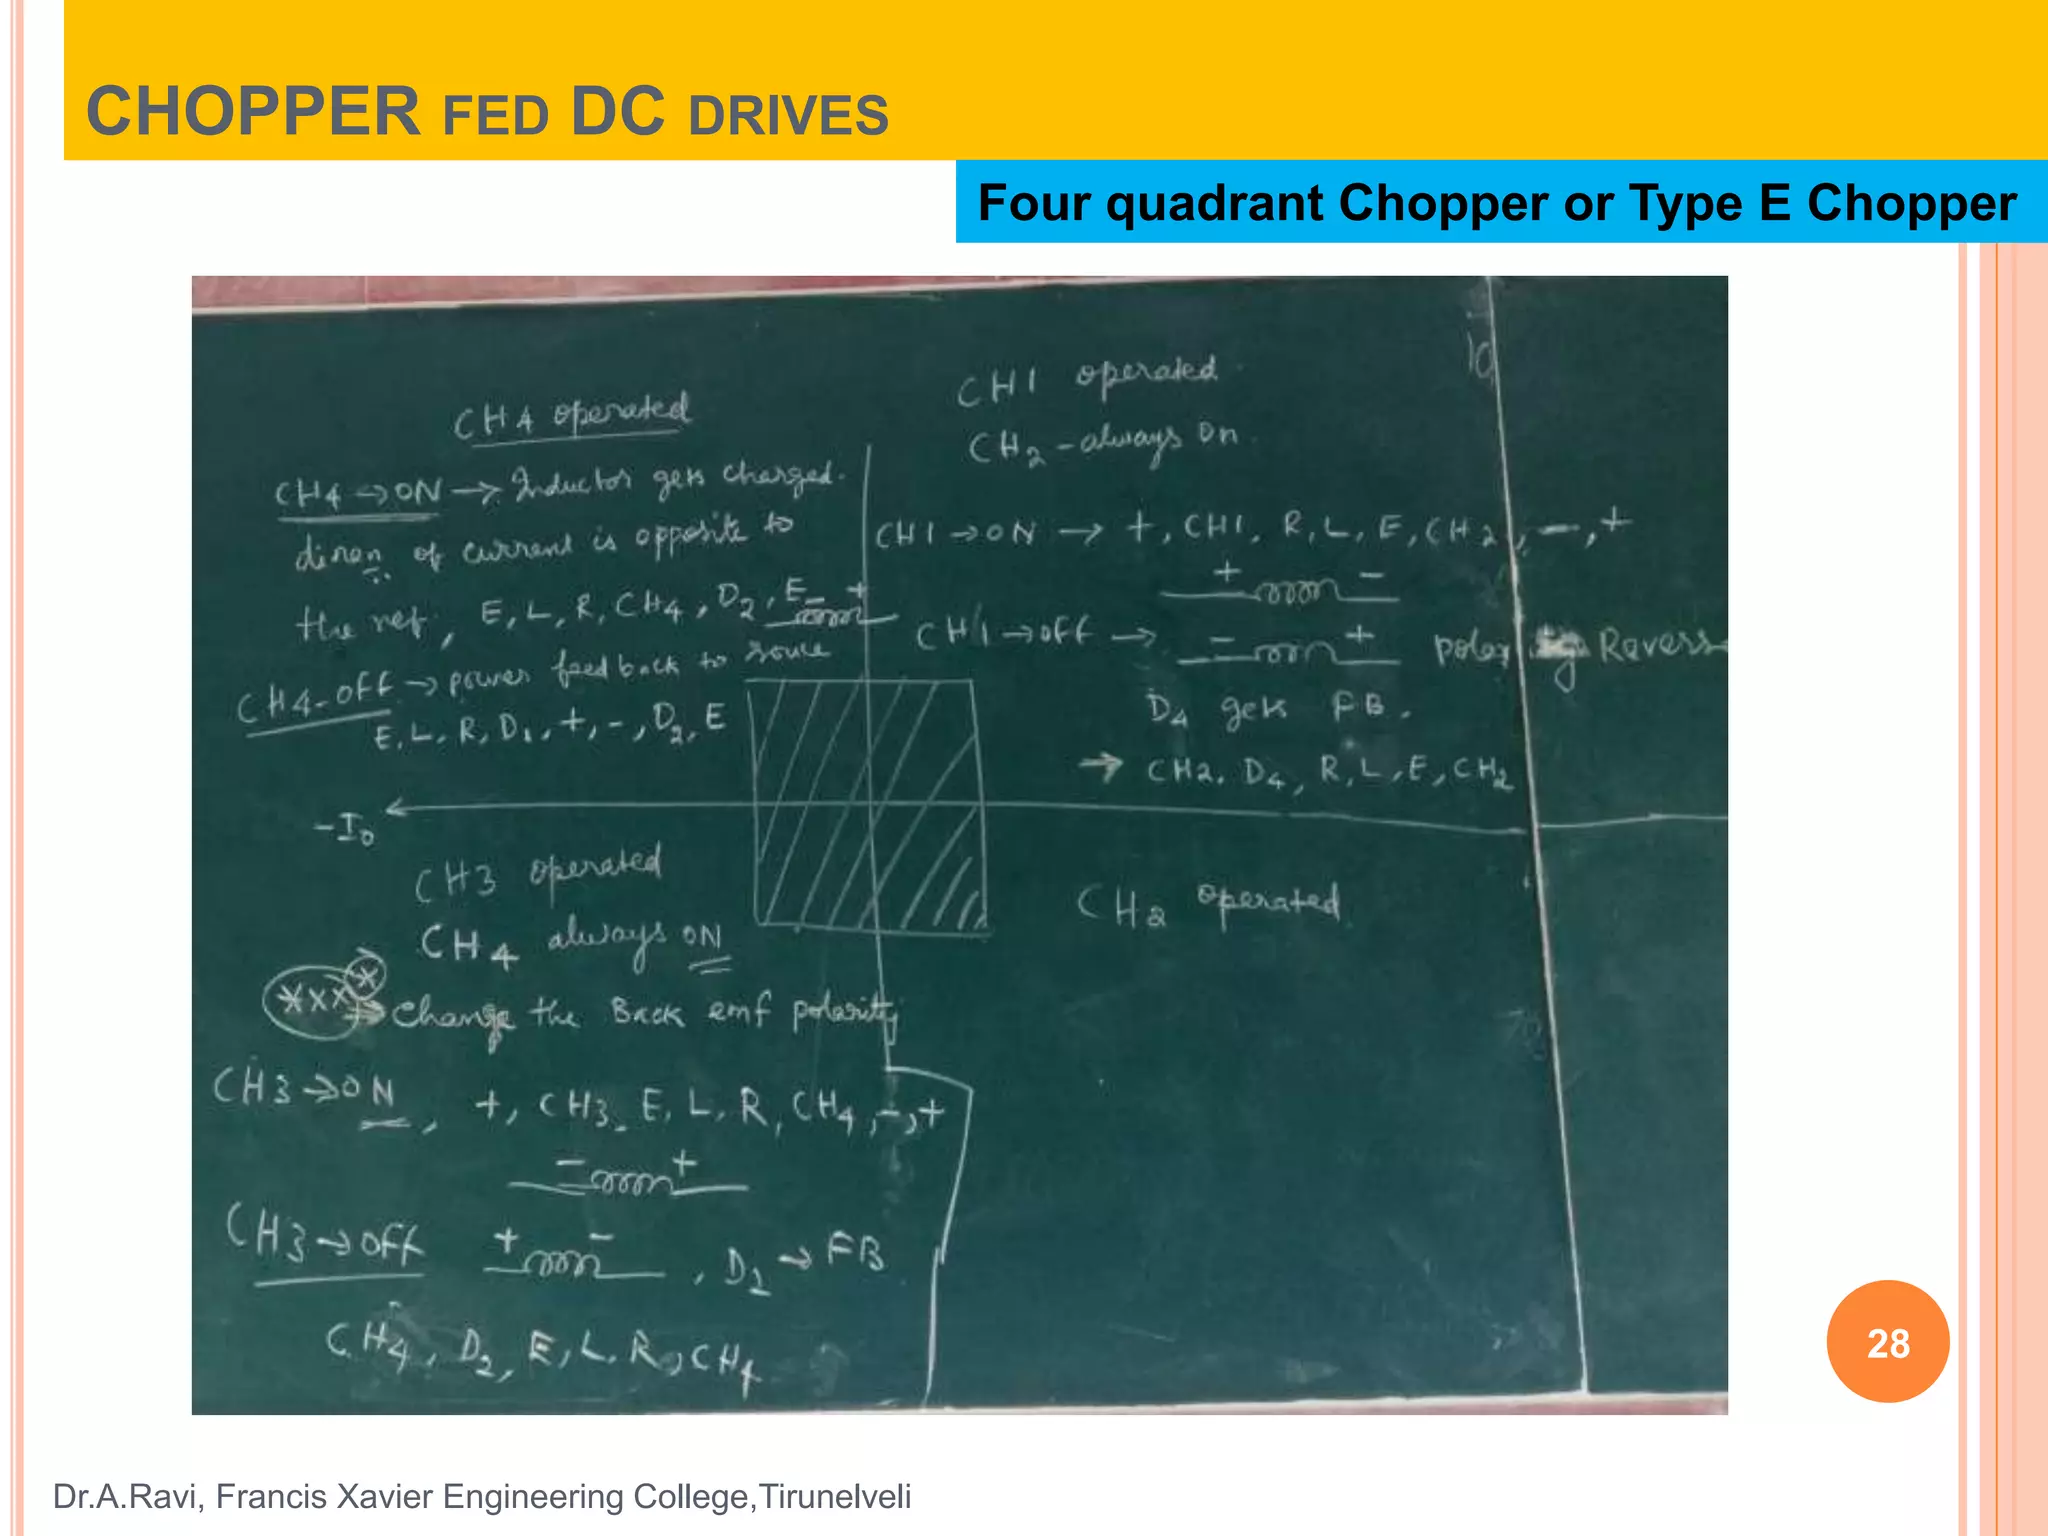 CHOPPER FED DC DRIVES
Four quadrant Chopper or Type E Chopper
CH4 operated
CH4 → ON → Inductor gets charged.
diren of current is opposite to
the ref, E, L, R, CH4, D2, E - +
CH4-OFF → power feed back to souce
E, L, R, D1, +, -, D2, E
CH1 operated
CH2 - always on.
CH1 → ON → +, CH1, R, L, E, CH2, -, +
+ -
CH1 → OFF → - + polarity Revers
D4 gets FB.
→ CH2, D4, R, L, E, CH2
-Io
CH3 operated
CH4 always ON
Change the Back emf polarity
CH3 → ON, +, CH3, E, L, R, CH4, -, +
- +
CH3 → OFF + - , D2 → FB
CH4, D2, E, L, R, CH4
CH2 operated
28
Dr.A.Ravi, Francis Xavier Engineering College,Tirunelveli